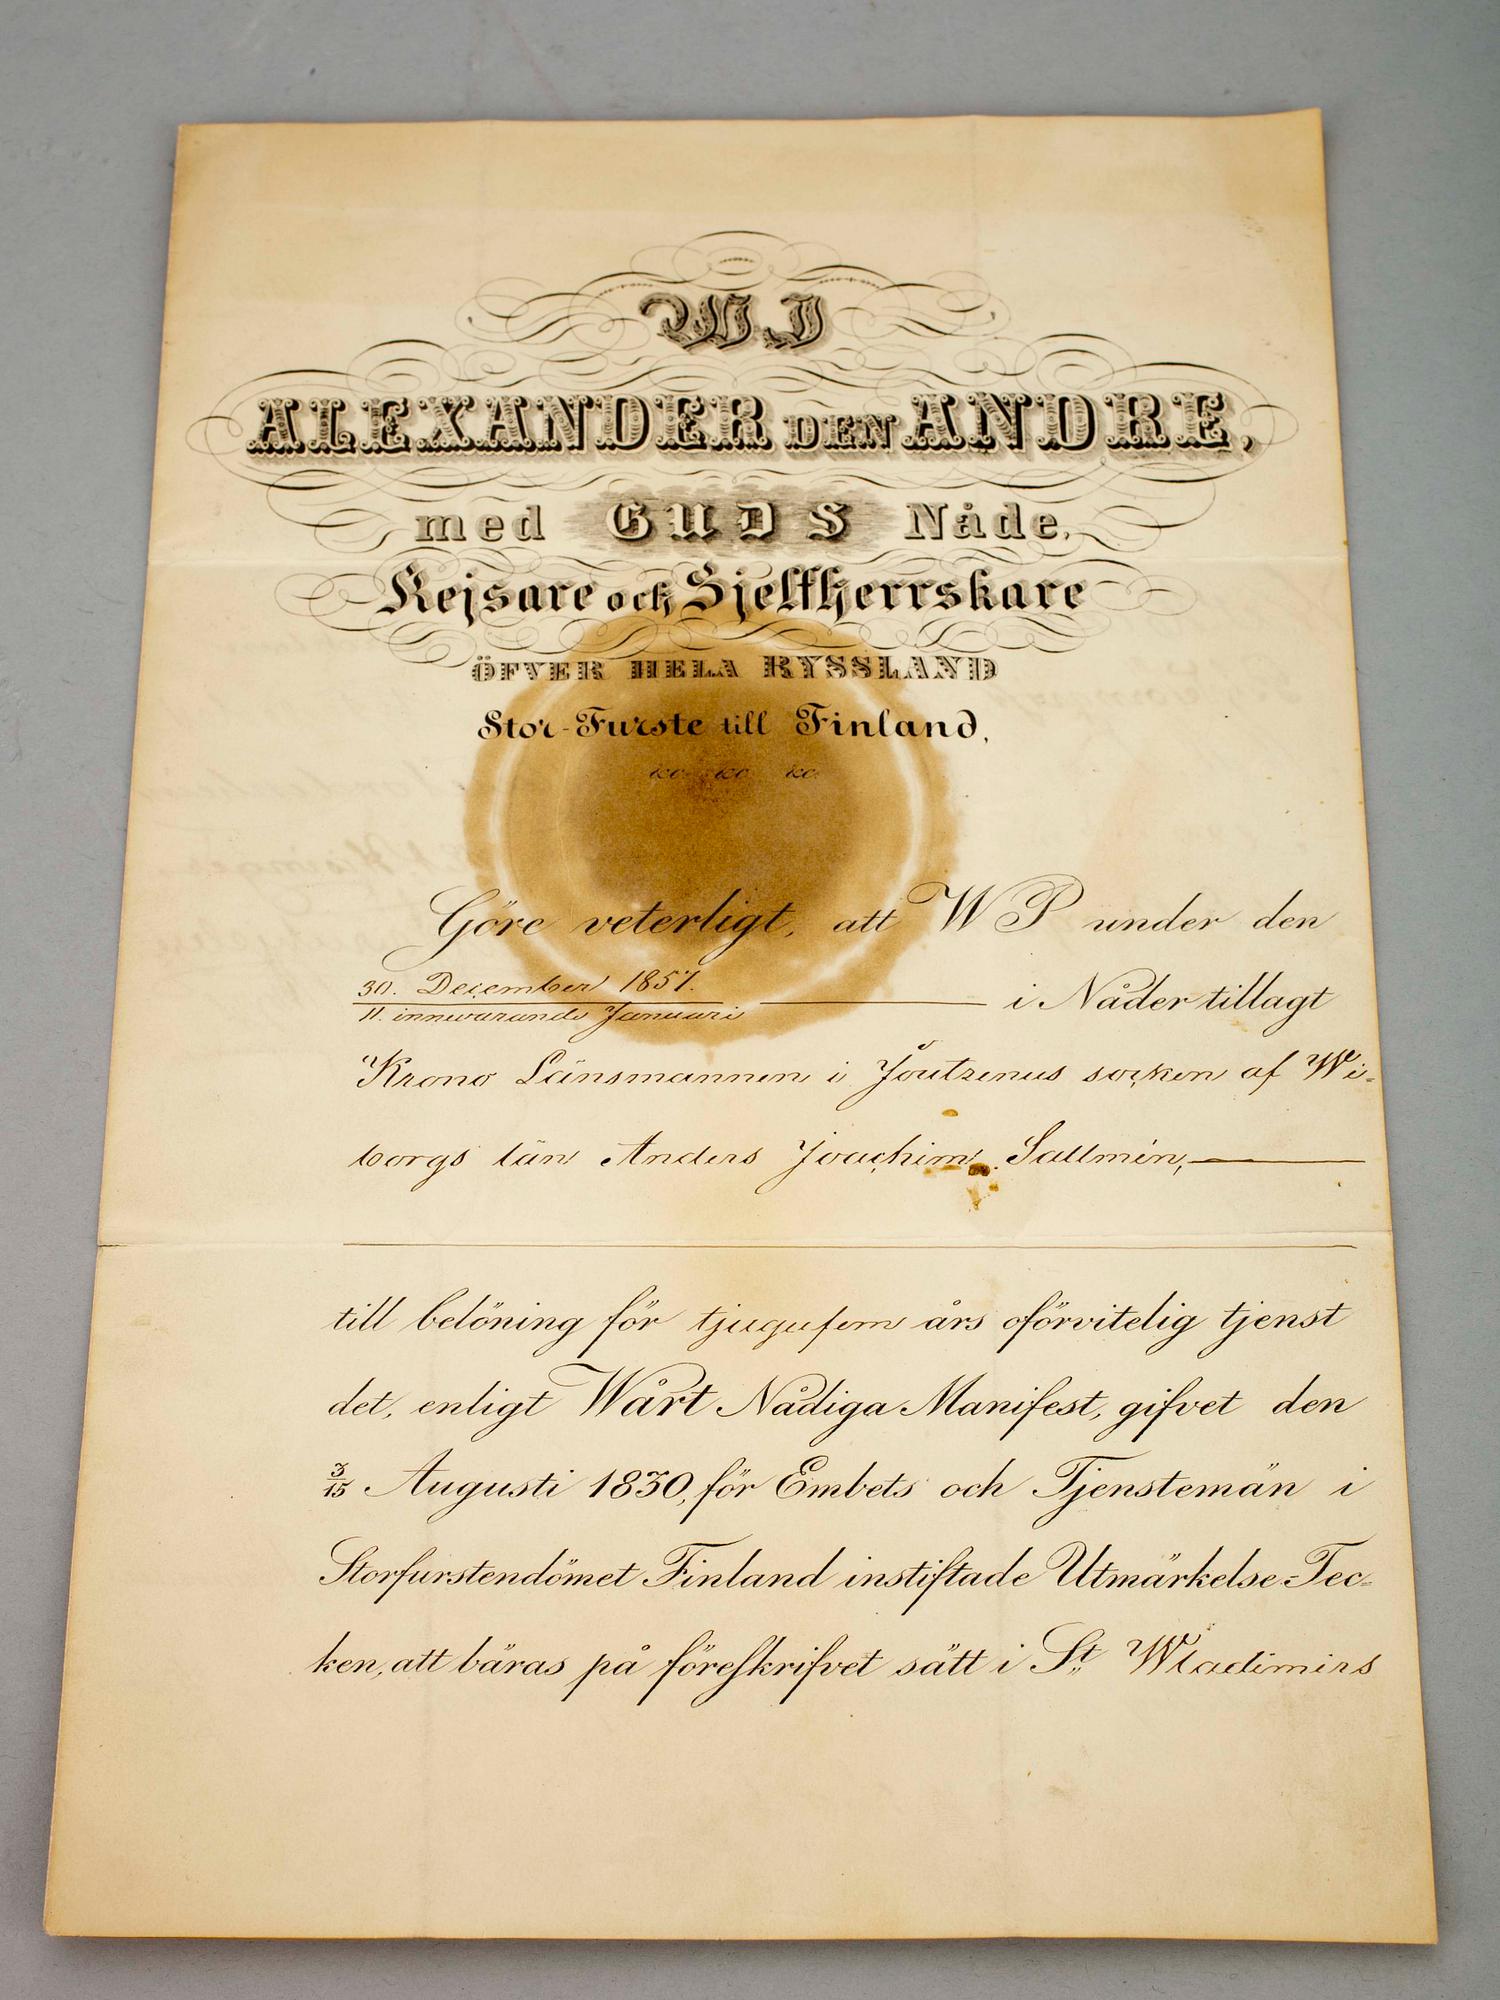 WI
ALEXANDER DEN ANDRE,
med GUDS Nåde,
Kejsare och Sjelfherrskare
ÖFVER HELA RYSSLAND
Stor-Furste till Finland,
&c. &c. &c.
Göre veterligt, att WI under den
30. December 1857.
11. innevarande Januari i Nåder tillagt
Krono Länsmannen i Jõutzenus socken af Wi-
borgs län Anders Joachim Sallmén,
till belöning för tjugufem års oförvitelig tjenst
det, enligt Wårt Nådiga Manifest, gifvet den
3/15 Augusti 1830, för Embets och Tjenstemän i
Storfurstendömet Finland instiftade Utmärkelse-Tec-
ken, att bäras på föreskrifvet sätt i St Wladimirs